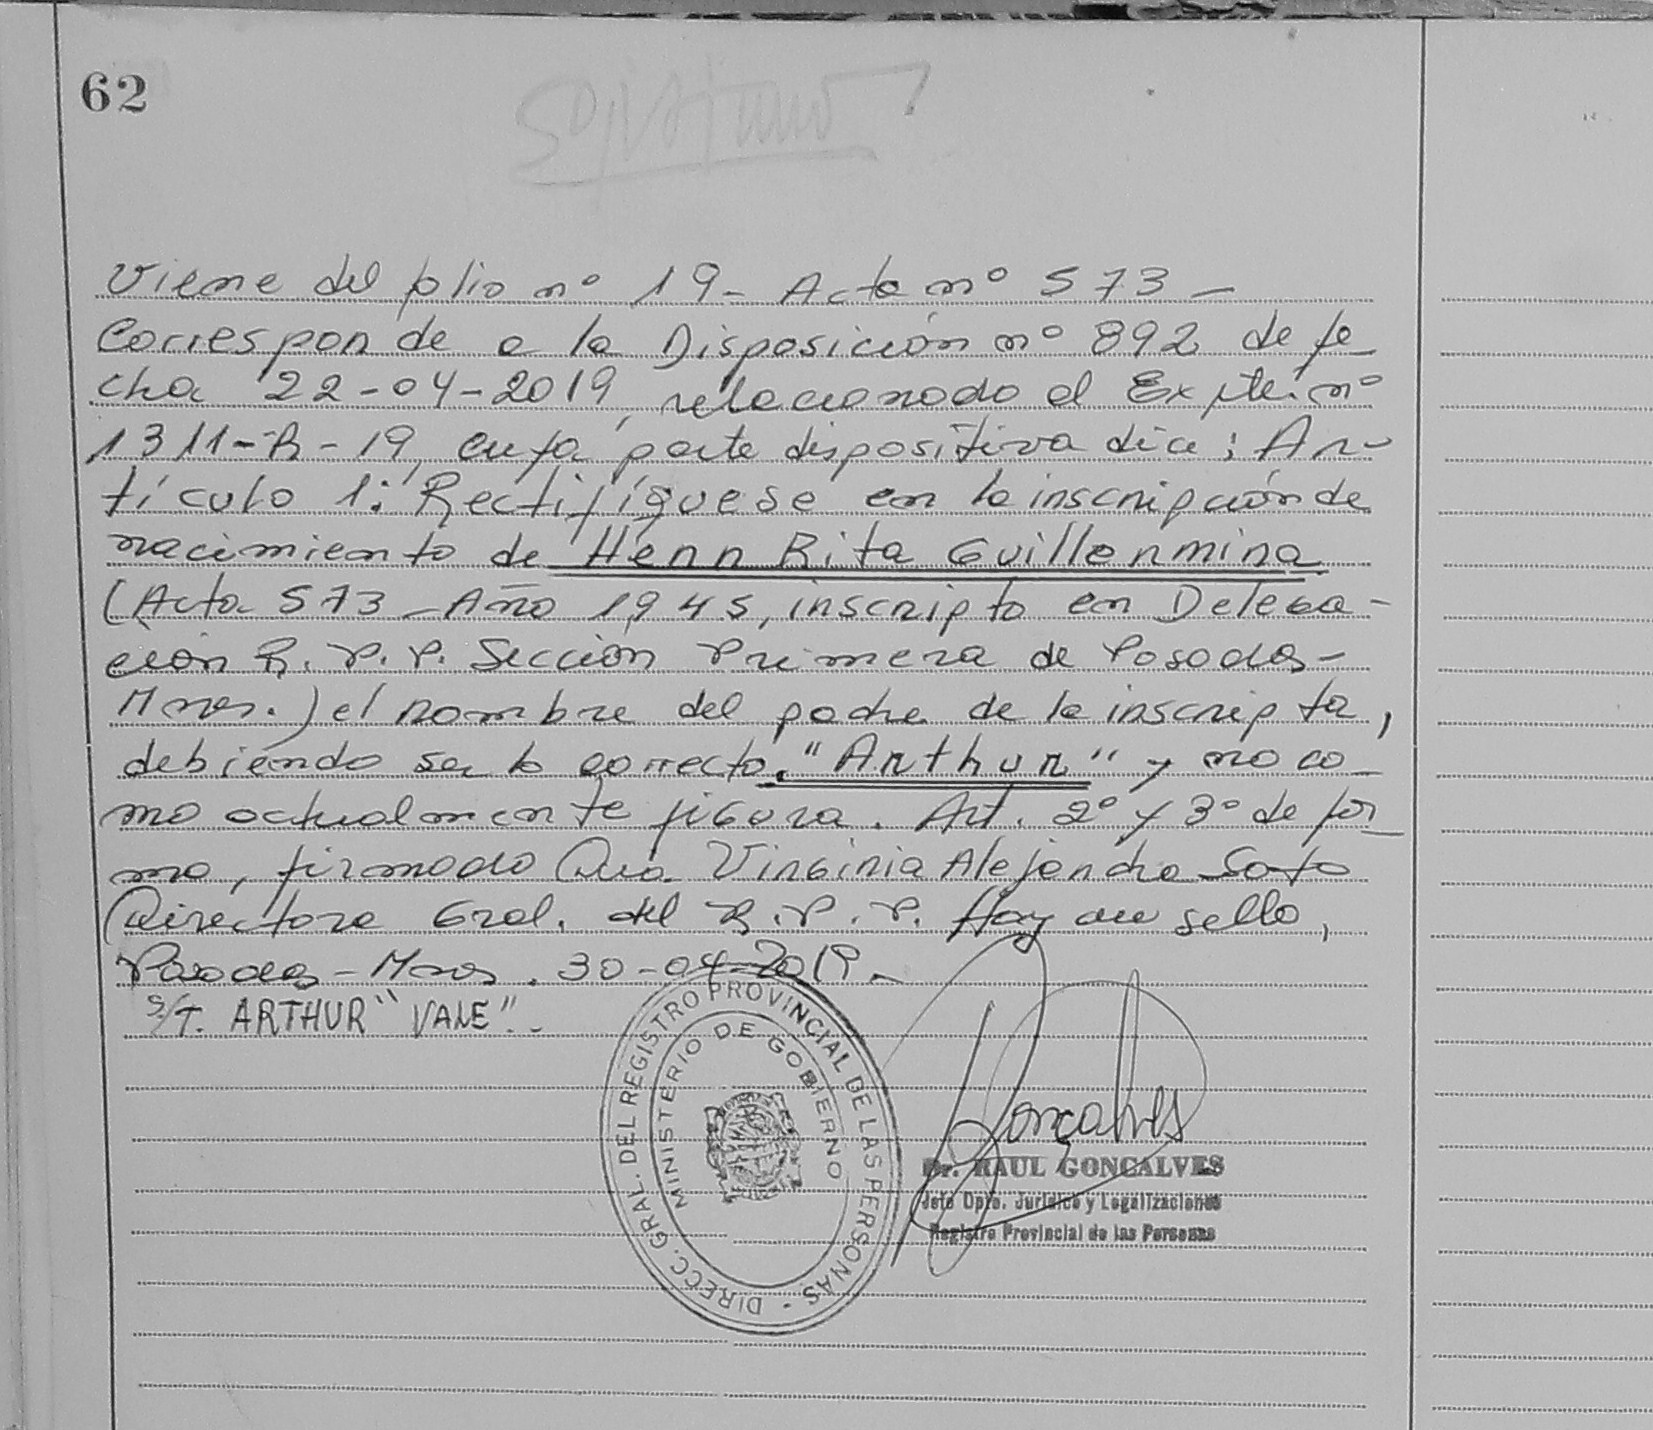 62
Viene del folio nº 19 - Acta nº 573 -
Corresponde a la Disposición nº 892 de fe
cha 22-04-2019, relacionado al Expte. nº
1311-R-19, cuya parte dispositiva dice: Ar-
tículo 1: Rectifíquese en la inscripción de
nacimiento de Henn Rita Guillermina
(Acta 573 - Año 1945, inscripto en Delega-
ción R. P. P. Sección Primera de Posadas-
Mnes.) el nombre del padre de la inscripta,
debiendo ser lo correcto "Arthur" y no co-
mo actualmente figura. Art. 2º y 3º de for
ma, firmado Dra. Virginia Alejandra Soto
Directora Gral. del R. P. P. Hay un sello,
Posadas - Mnes. 30-04-2019.-
S/T. ARTHUR "VALE".-
DIRECC. GRAL. DEL REGISTRO PROVINCIAL DE LAS PERSONAS -
MINISTERIO DE GOBIERNO
Gonçalves
Dr. RAUL GONÇALVES
Jefe Dpto. Jurídico y Legalizaciones
Registro Provincial de las Personas